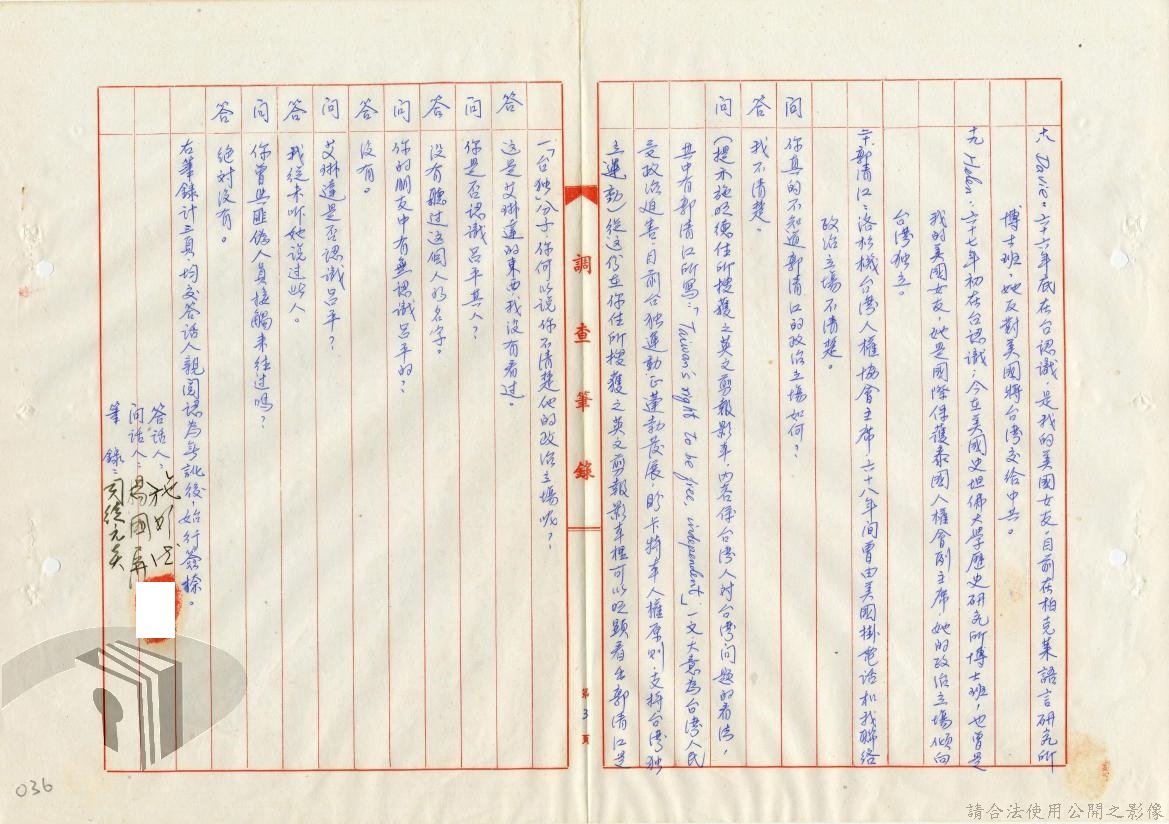 大 Davie：六十六年底在台認識，是我的美國女友，目前在柏克萊語言研究所
博士班，她反對美國將台湾交给中共。
十九 Helen：六十七年初在台認識，今在美國史坦佛大學歷史研究所博士班，也曾是
我的美國女友，她是國際保護泰國人權會副主席，她的政治立場傾向
台湾独立。
二十 郭清江：洛杉機台湾人權協會主席，六十八年间曾由美國掛電话和我聯络
政治立場不清楚。
问 你真的不知道郭清江的政治立場如何？
答 我不清楚。
问 （提示施明德住所搜獲之英文剪報影本，内容係台湾人对台湾问題的看法，
其中有郭清江所寫：「Taiwan's right to be free, independent」一文，大意為台湾人民
受政治迫害，目前台独運動正蓬勃發展，盼卡特本人權原则，支持台湾独
立運動）從这份在你住所搜獲之英文剪報影本裡可以明顯看出郭清江是
一「台独」分子，你何以说你不清楚他的政治立場呢？
答 这是艾琳達的東西我沒有看过。
问 你是否認識呂平其人？
答 沒有聽过这個人的名字。
问 你的朋友中有無認識呂平的？
答 沒有。
问 艾琳達是否認識呂平？
答 我從未听她说过此人。
问 你曾与匪偽人員接觸来往过嗎？
答 绝对沒有。
右筆録计三頁，均交答话人親阅認為無訛後，始行簽捺。
答话人：施明德
问话人：楊國屏
筆 録：司徒元炎
調查筆錄
第3頁
036
請合法使用公開之影像